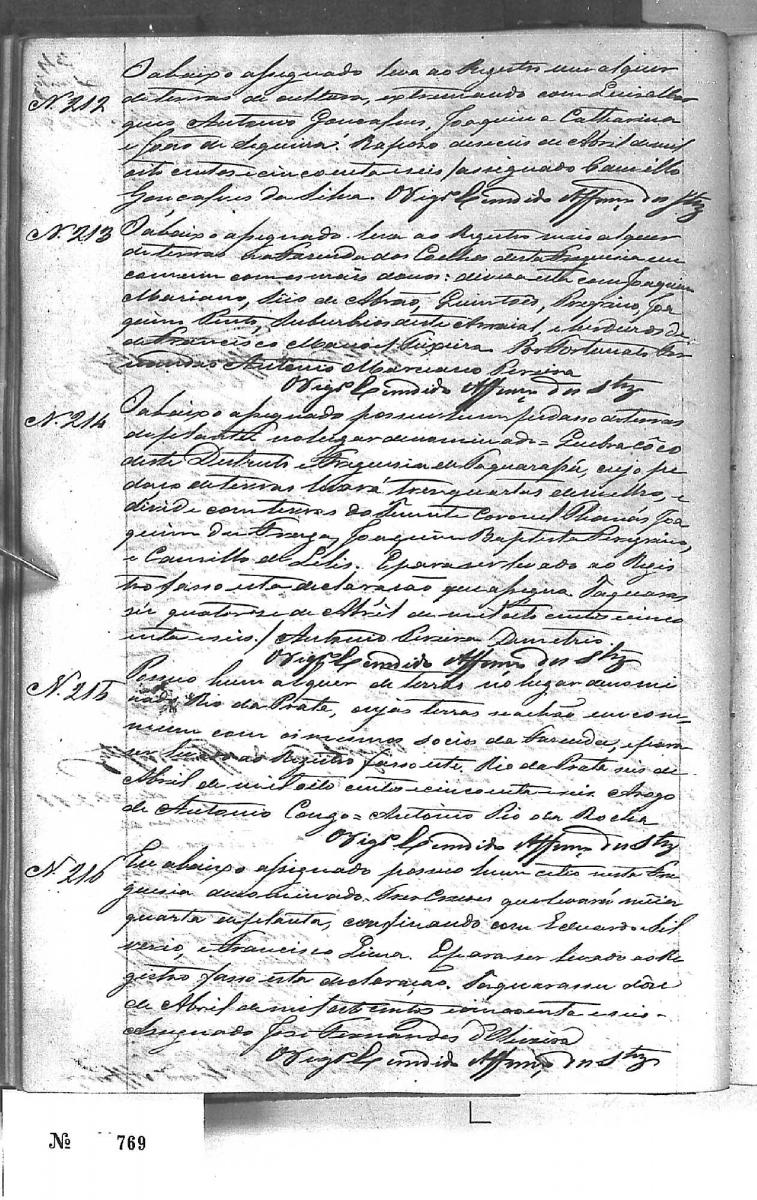 N. 212
O abaixo assignado leva ao Registro um alquer
de terras de cultura, extremando com Luis Mar
ques, Antonio Gonçalves, Joaquina Catharina
e João de Siqueira. Raposo deseseis de Abril de mil
oito centos e cincoenta e seis / assignado Camillo
Gonçalves da Silva. O Vigº Candido Affonço dos Stos
N. 213
O abaixo assignado leva ao Registro meio alquer
de terras na Fazenda dos Coelhos desta Freguezia em
comum com os mais donos: divisa esta com Joaquim
Mariano, Abrão, Quintões, Joa
quim Pinto, Suburbios deste Arraial, e herdeiros de
Francisco Manoel Teixeira Por Fortunato Fer
Antonio Marciano Pereira
O Vigº Candido Affonço dos Stos
N. 214
O abaixo assignado possue hum pedaso de terras
de planta no lugar denominado =
deste Destricto e Freguesia de Taquarasú, cujo pe
daço de terras levará tres quartas de milho, e
divide com terras do Tenente Coronel Thomás Joa
quim da Fraga, Joaquim Baptista Peregrino,
e Camillo de Lelis. E para ser levado ao Regis
tro fasso esta declaração que assigna. Taquaras
sú quatorse de Abril de mil oito cento e cinco
enta e seis. / Antonio Pereira Demetrio
O Vigº Candido Affonço dos Stos
N. 215
Possuo hum alquer de terras no lugar denomi
nado Rio da Prata, cujas terras se achão em com
mum com os mesmos socios da Fazenda, e para
ser levado ao Registro fasso este, Rio da Prata seis de
Abril de mil oito cento e cincoenta e seis Arogo
de Antonio Congo = Antonio Pio da Rocha
O Vigº Candido Affonço dos Stos
N. 216
Eu abaixo assignado possuo hum citio nesta Fre
guesia denominado Tres Cruzes que levará meia
quarta de planta, confinando com Eduardo Sil
verio, e Francisco Lima. E para ser levado ao Re
gistro fasso esta declaração. Taquarassu dose
de Abril de mil oito centos e cincoenta e seis -
Assignado José Fernandes d'Oliveira
O Vigº Candido Affonço dos Stos
Nº 769